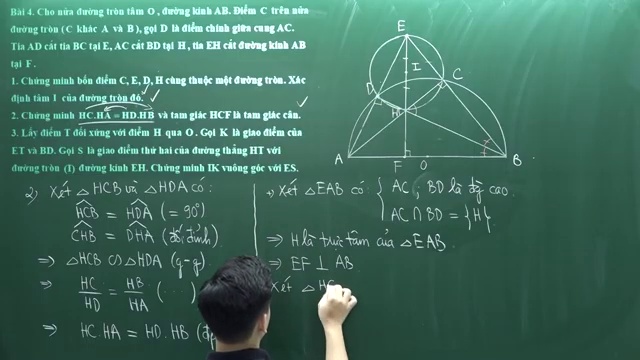 Bài 4. Cho nửa đường tròn tâm O , đường kính AB. Điểm C trên nửa
đường tròn (C khác A và B), gọi D là điểm chính giữa cung AC.
Tia AD cắt tia BC tại E, AC cắt BD tại H , tia EH cắt đường kính AB
tại F .
1. Chứng minh bốn điểm C, E, D, H cùng thuộc một đường tròn. Xác
định tâm I của đường tròn đó.
2. Chứng minh HC.HA = HD.HB và tam giác HCF là tam giác cân.
3. Lấy điểm T đối xứng với điểm H qua O . Gọi K là giao điểm của
ET và BD. Gọi S là giao điểm thứ hai của đường thẳng HT với
đường tròn (I) đường kính EH. Chứng minh IK vuông góc với ES.
E
I
D
C
H
A
F
O
B
2) Xét △HCB và △HDA có:
HCB = HDA (= 90°)
CHB = DHA (đối đỉnh)
⇒ △HCB ∽ △HDA (g-g)
⇒ HC/HD = HB/HA (...)
⇒ HC.HA = HD.HB
+, Xét △EAB có { AC ; BD là đg cao.
AC ∩ BD = {H}
⇒ H là trực tâm của △EAB.
⇒ EF ⊥ AB
Xét △